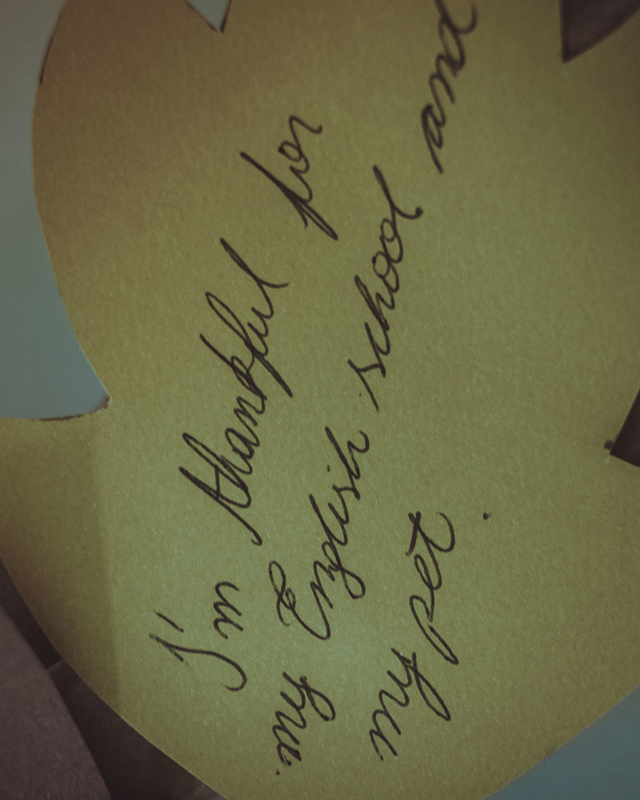 I'm thankful for
my English school and
my pet.